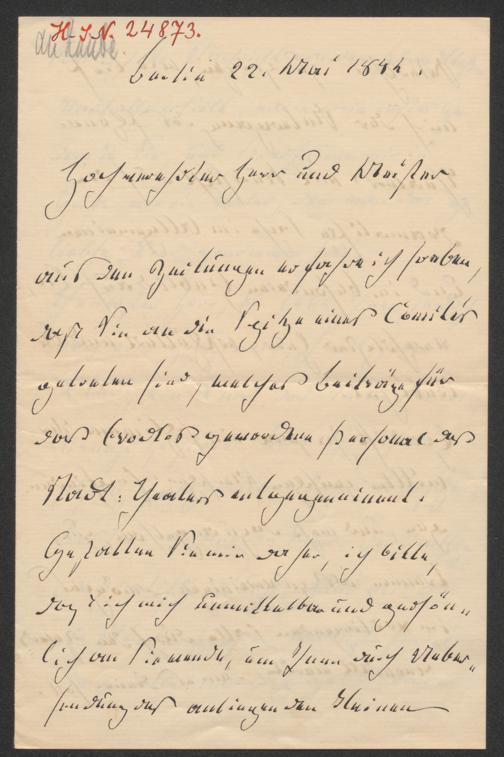 H. I. N. 24873.
an Laube.
Berlin 22. Mai 1884.
Hochverehrter Herr und Meister
aus den Zeitungen erfahre ich soeben,
daß Sie an die Spitze eines Comités
getreten sind, welches Beiträge für
das brodlos gewordene Personal des
Stadt-Theaters entgegennimmt.
Gestatten Sie mir daher, ich bitte,
daß ich mich unmittelbar und persön-
lich an Sie wende, um Ihnen durch Ueber-
sendung des anliegenden kleinen